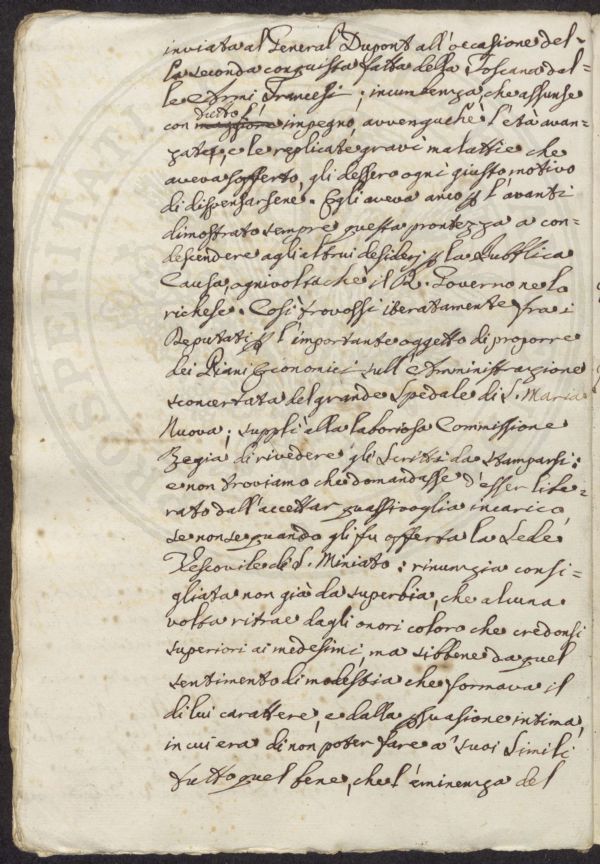 inviata al General Dupont all'occasione del-
la seconda conquista fatta della Toscana dal-
le Armi Francesi; incumbenza che assunse
tutto l'
con maggiore impegno, avvenguchè l'età avan-
zata, e le replicate gravi malattie che
aveva sofferto, gli dessero ogni giusto motivo
di dispensarsene. Egli aveva anco p l'avanti
dimostrato sempre questa prontezza a con-
descendere agli altrui desiderj p la Pubblica
Causa ogni volta chè il R. Governo ne lo
richese. Così trovossi iteratamente fra i
Deputati p l'importante oggetto di proporre
dei Piani Economici sull'Amministrazione
sconcertata del grande Spedale di S. Maria
Nuova; supplì alla laboriosa Commissione
Regia di rivedere gli Scritti da stamparsi:
e non troviamo che domandasse d'esser libe-
rato dall'accettar qualsivoglia incarico,
se non se quando gli fu offerta la Sede
Vescovile di S. Miniato: rinunzia consi-
gliata non già da superbia, che alcuna
volta ritrae dagli onori coloro che credonsi
superiori ai medesimi, ma sibbene da quel
sentimento di modestia che formava il
di lui carattere, e dalla psuasione intima,
in cui era di non poter fare a' suoi Simili
tutto quel bene, che l'eminenza del